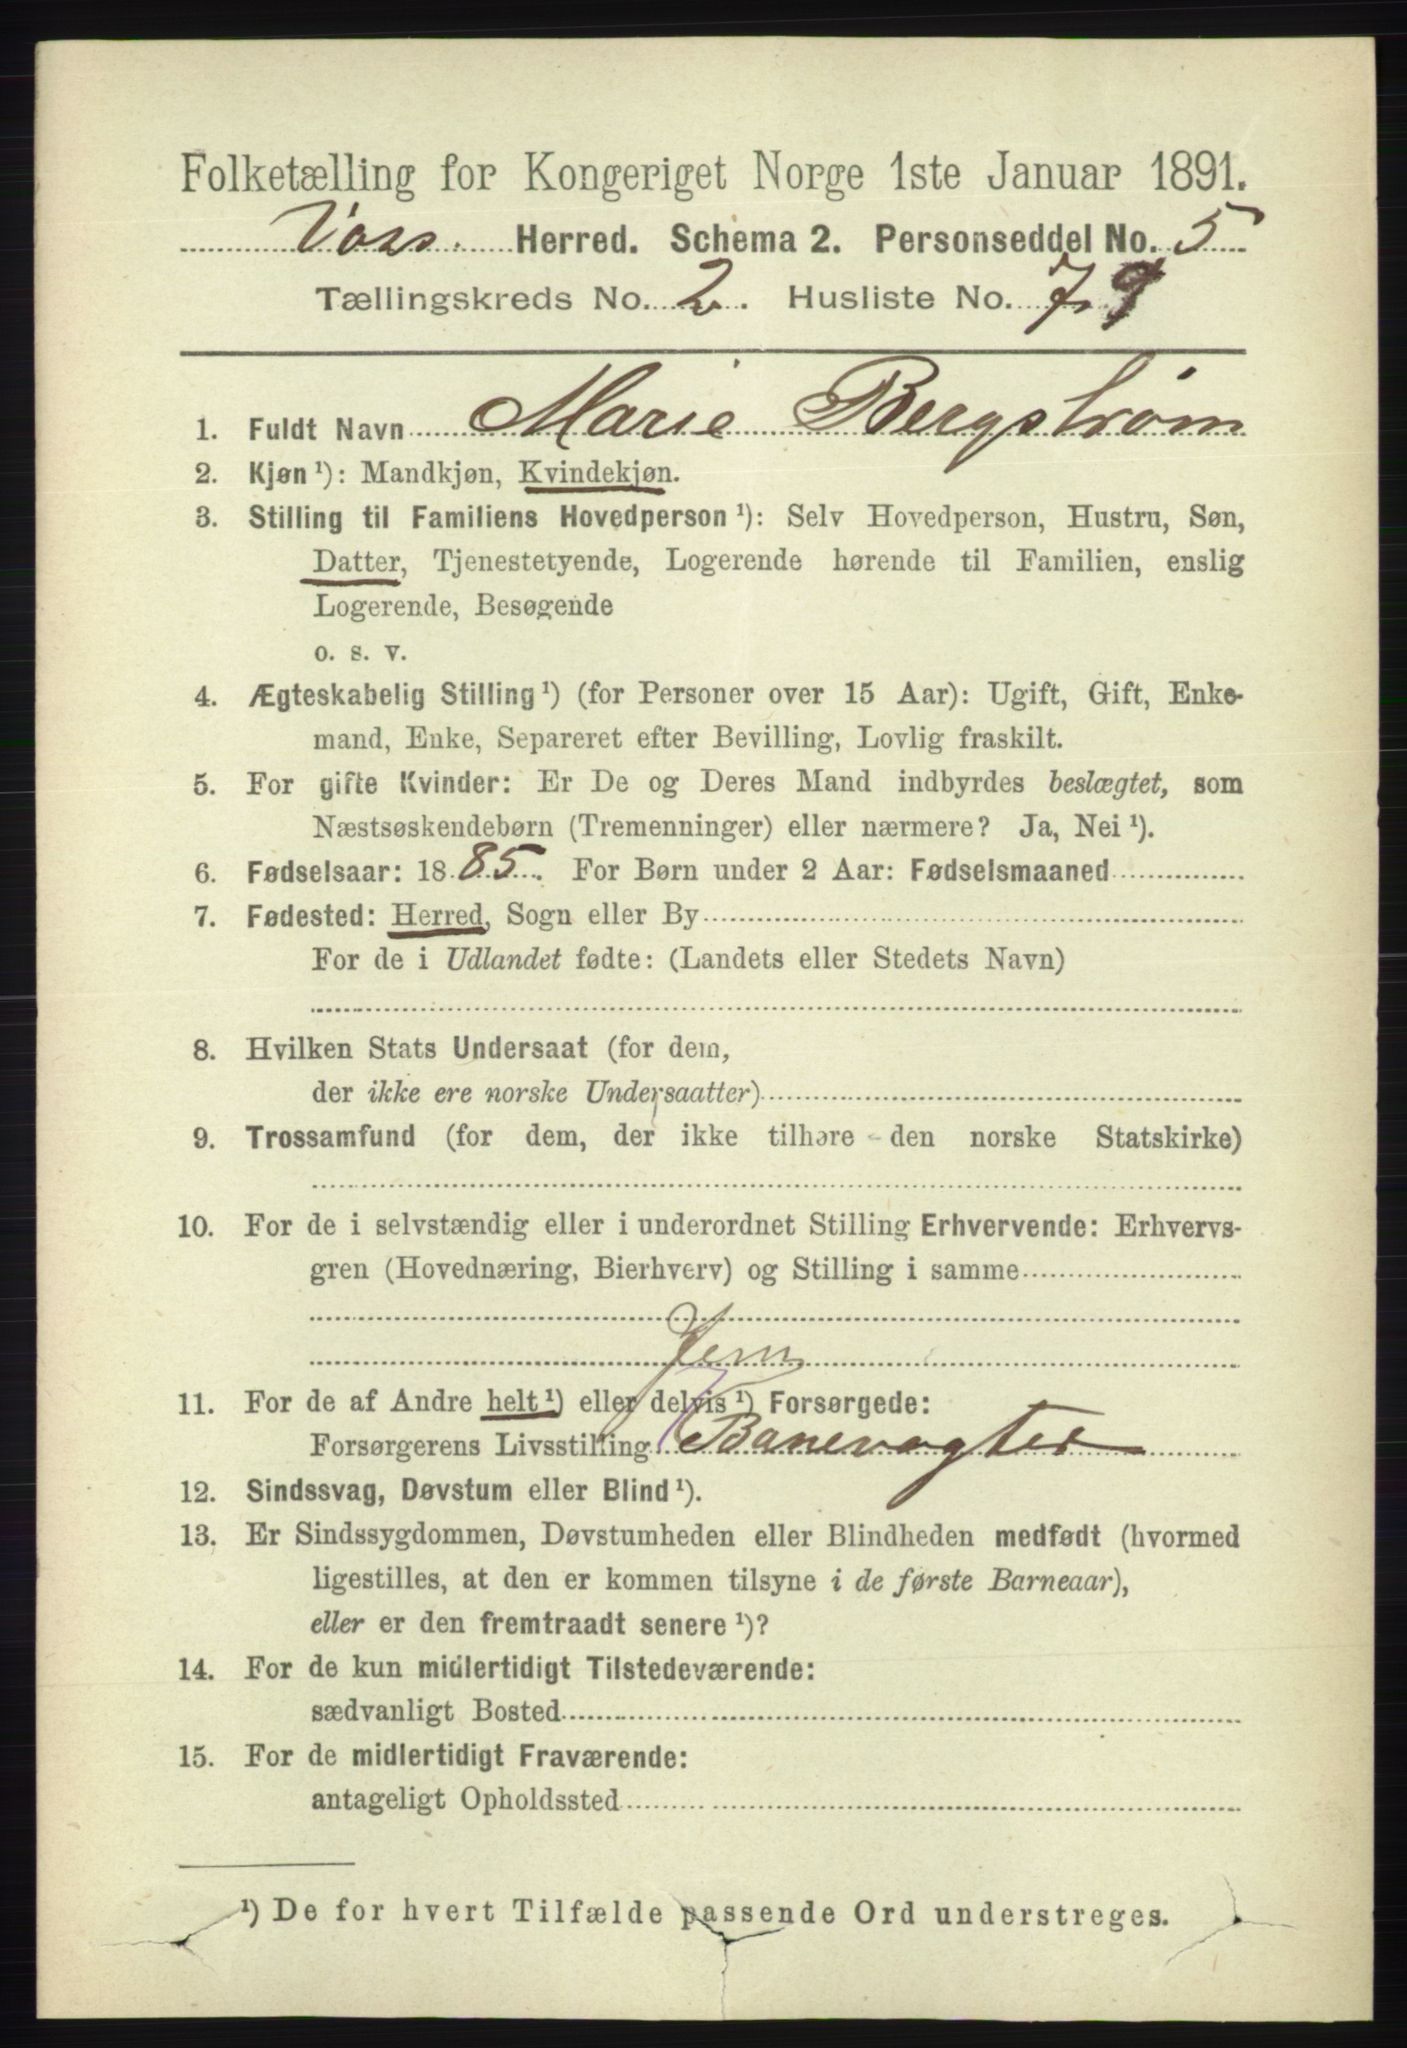 Folketælling for Kongeriget Norge 1ste Januar 1891.
Voss. Herred. Schema 2. Personseddel No. 5
Tællingskreds No. 2. Husliste No. 79
1. Fuldt Navn Marie Bergstrøm
2. Kjøn ¹): Mandkjøn, Kvindekjøn.
3. Stilling til Familiens Hovedperson ¹): Selv Hovedperson, Hustru, Søn,
Datter, Tjenestetyende, Logerende hørende til Familien, enslig
Logerende, Besøgende
o. s. v.
4. Ægteskabelig Stilling ¹) (for Personer over 15 Aar): Ugift, Gift, Enke-
mand, Enke, Separeret efter Bevilling, Lovlig fraskilt.
5. For gifte Kvinder: Er De og Deres Mand indbyrdes beslægtet, som
Næstsøskendebørn (Tremenninger) eller nærmere? Ja, Nei ¹).
6. Fødselsaar: 1885. For Børn under 2 Aar: Fødselsmaaned
7. Fødested: Herred, Sogn eller By
For de i Udlandet fødte: (Landets eller Stedets Navn)
8. Hvilken Stats Undersaat (for dem,
der ikke ere norske Undersaatter)
9. Trossamfund (for dem, der ikke tilhøre den norske Statskirke)
10. For de i selvstændig eller i underordnet Stilling Erhvervende: Erhvervs-
gren (Hovednæring, Bierhverv) og Stilling i samme
Jern
11. For de af Andre helt ¹) eller delvis ¹) Forsørgede:
Forsørgerens Livsstilling Banevogter
12. Sindssvag, Døvstum eller Blind ¹).
13. Er Sindssygdommen, Døvstumheden eller Blindheden medfødt (hvormed
ligestilles, at den er kommen tilsyne i de første Barneaar),
eller er den fremtraadt senere ¹)?
14. For de kun midlertidigt Tilstedeværende:
sædvanligt Bosted
15. For de midlertidigt Fraværende:
antageligt Opholdssted
¹) De for hvert Tilfælde passende Ord understreges.